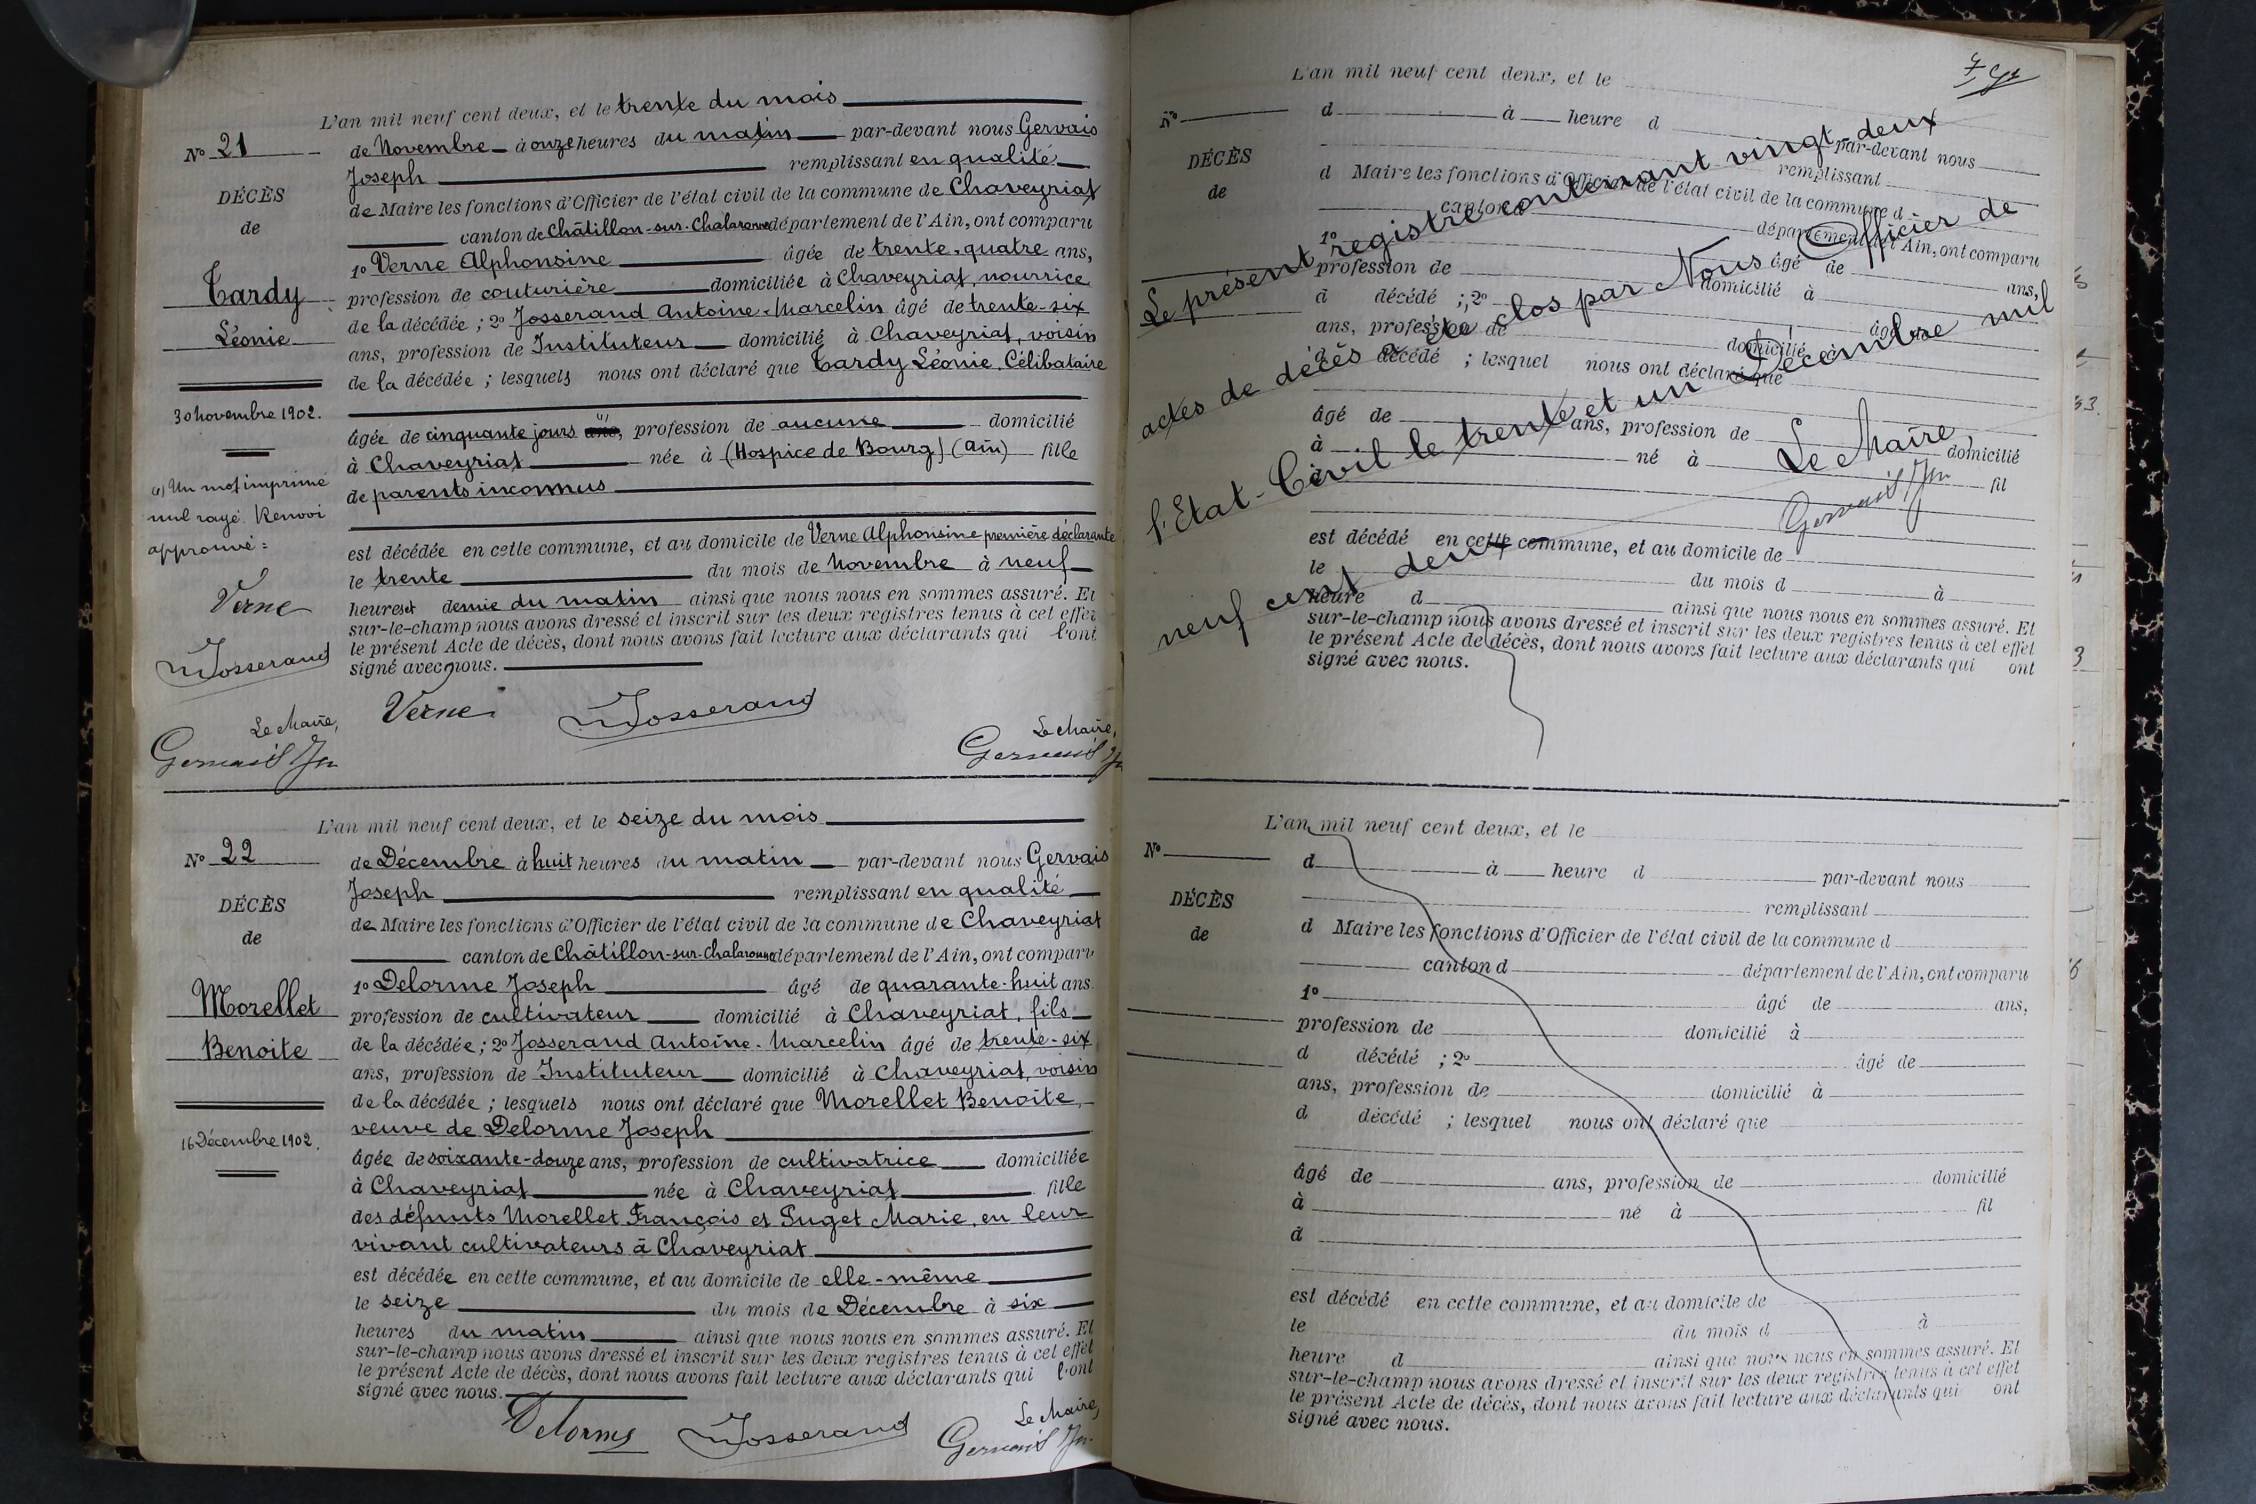 L'an mil neuf cent deux, et le trente du mois
No 21
de Novembre à onze heures du matin par-devant nous Gervais
Joseph remplissant en qualité
DÉCÈS
de Maire les fonctions d'Officier de l'état civil de la commune de Chaveyriat
de
canton de Châtillon-sur-Chalaronne département de l'Ain, ont comparu
1o Verne Alphonsine âgée de trente-quatre ans,
Tardy
profession de couturière domiciliée à Chaveyriat, nourrice
de la décédée ; 2o Josserand Antoine-Marcelin âgé de trente-six
Léonie
ans, profession de Instituteur domicilié à Chaveyriat, voisin
de la décédée ; lesquels nous ont déclaré que Tardy Léonie, Célibataire
30 Novembre 1902.
âgée de cinquante jours (1) ans, profession de aucune domicilié
à Chaveyriat née à (Hospice de Bourg) (Ain) fille
(1) Un mot imprimé
de parents inconnus
nul rayé. Renvoi
approuvé =
est décédée en cette commune, et au domicile de Verne Alphonsine première déclarante
le trente du mois de Novembre à neuf
heures et demie du matin ainsi que nous nous en sommes assuré. Et
Verne
sur-le-champ nous avons dressé et inscrit sur les deux registres tenus à cet effet
le présent Acte de décès, dont nous avons fait lecture aux déclarants qui l'ont
Josserand
signé avec nous.
Verne Josserand
Le Maire,
Gervais Jh
Le Maire,
Gervais Jh
L'an mil neuf cent deux, et le seize du mois
No 22
de Décembre à huit heures du matin par-devant nous Gervais
Joseph remplissant en qualité
DÉCÈS
de Maire les fonctions d'Officier de l'état civil de la commune de Chaveyriat
de
canton de Châtillon-sur-Chalaronne département de l'Ain, ont comparu
1o Delorme Joseph âgé de quarante-huit ans.
Morellet
profession de cultivateur domicilié à Chaveyriat, fils
Benoite
de la décédée ; 2o Josserand Antoine-Marcelin âgé de trente-six
ans, profession de Instituteur domicilié à Chaveyriat, voisin
de la décédée ; lesquels nous ont déclaré que Morellet Benoite,
veuve de Delorme Joseph
16 Décembre 1902.
âgée de soixante-douze ans, profession de cultivatrice domiciliée
à Chaveyriat née à Chaveyriat fille
des défunts Morellet François et Puget Marie, en leur
vivant cultivateurs à Chaveyriat
est décédée en cette commune, et au domicile de elle-même
le seize du mois de Décembre à six
heures du matin ainsi que nous nous en sommes assuré. Et
sur-le-champ nous avons dressé et inscrit sur les deux registres tenus à cet effet
le présent Acte de décès, dont nous avons fait lecture aux déclarants qui l'ont
signé avec nous.
Delorme Josserand
Le Maire,
Gervais Jh
L'an mil neuf cent deux, et le
No
d à heure d
par-devant nous
DÉCÈS
remplissant
de
d Maire les fonctions d'Officier de l'état civil de la commune d
canton département de l'Ain, ont comparu
1o âgé de ans,
profession de domicilié à
d décédé ; 2o âgé de
ans, profession de domicilié à
d décédé ; lesquel nous ont déclaré que
âgé de ans, profession de domicilié
à né à fil
est décédé en cette commune, et au domicile de
le du mois d à
heure d ainsi que nous nous en sommes assuré. Et
sur-le-champ nous avons dressé et inscrit sur les deux registres tenus à cet effet
le présent Acte de décès, dont nous avons fait lecture aux déclarants qui ont
signé avec nous.
Le présent registre contenant vingt-deux
actes de décès a été clos par Nous Officier de
l'Etat-Civil le trente et un Décembre mil
neuf cent deux
Le Maire,
Gervais Jh
L'an mil neuf cent deux, et le
No
d à heure d par-devant nous
remplissant
DÉCÈS
de
d Maire les fonctions d'Officier de l'état civil de la commune d
canton d département de l'Ain, ont comparu
1o âgé de ans,
profession de domicilié à
d décédé ; 2o âgé de
ans, profession de domicilié à
d décédé ; lesquel nous ont déclaré que
âgé de ans, profession de domicilié
à né à fil
d
est décédé en cette commune, et au domicile de
le du mois d à
heure d ainsi que nous nous en sommes assuré. Et
sur-le-champ nous avons dressé et inscrit sur les deux registres tenus à cet effet
le présent Acte de décès, dont nous avons fait lecture aux déclarants qui ont
signé avec nous.